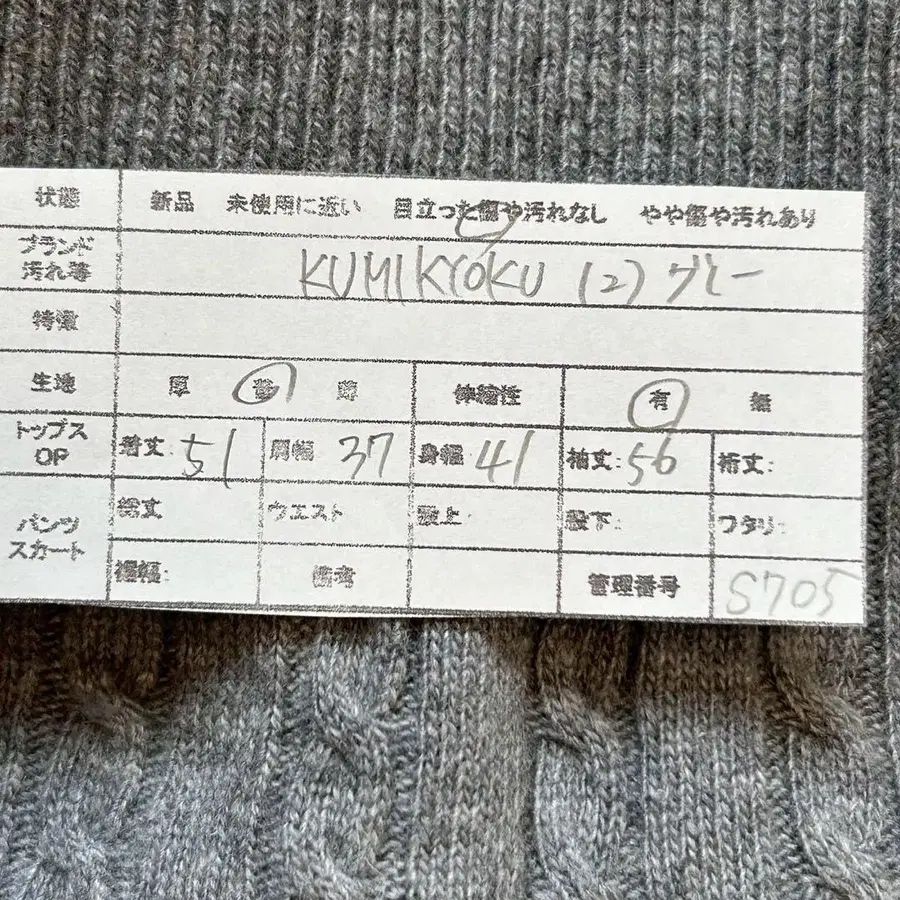 状態 新品 未使用に近い 目立った傷や汚れなし やや傷や汚れあり
ブランド
汚れ等 KUMIKYOKU (2) グレー
特徴
生地 厚 普 薄 伸縮性 有 無
トップス
OP 着丈: 51 肩幅 37 身幅: 41 袖丈: 56 裄丈:
パンツ
スカート 総丈 ウエスト 股上: 股下: ワタリ:
裾幅: 備考 管理番号 S705